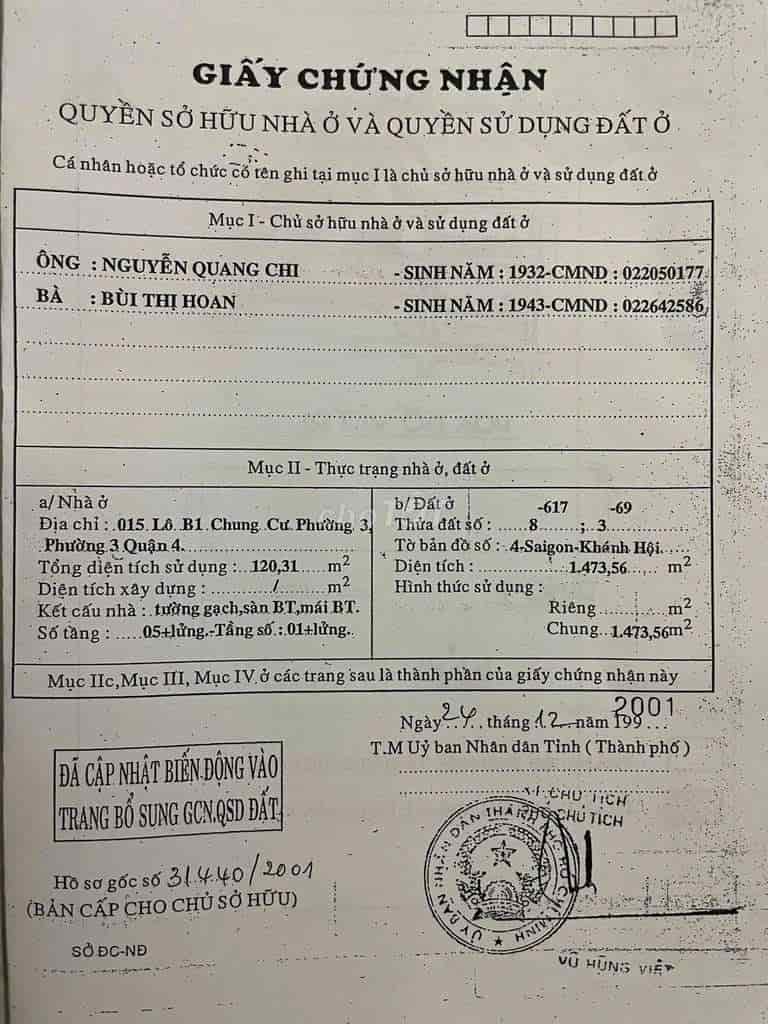 GIẤY CHỨNG NHẬN
QUYỀN SỞ HỮU NHÀ Ở VÀ QUYỀN SỬ DỤNG ĐẤT Ở
Cá nhân hoặc tổ chức có tên ghi tại mục I là chủ sở hữu nhà ở và sử dụng đất ở
Mục I - Chủ sở hữu nhà ở và sử dụng đất ở
ÔNG : NGUYỄN QUANG CHI - SINH NĂM : 1932-CMND : 022050177
BÀ : BÙI THỊ HOAN - SINH NĂM : 1943-CMND : 022642586
Mục II - Thực trạng nhà ở, đất ở
a/ Nhà ở
Địa chỉ : 015 Lô B1 Chung Cư Phường 3,
Phường 3 Quận 4.
Tổng diện tích sử dụng : 120,31 m2
Diện tích xây dựng : / m2
Kết cấu nhà : tường gạch,sàn BT,mái BT.
Số tầng : 05+lửng.-Tầng số : 01+lửng.
b/ Đất ở -617 -69
Thửa đất số : 8 ; 3
Tờ bản đồ số : 4-Saigon-Khánh Hội.
Diện tích : 1.473,56 m2
Hình thức sử dụng :
Riêng m2
Chung 1.473,56m2
Mục IIc,Mục III, Mục IV ở các trang sau là thành phần của giấy chứng nhận này
Ngày 24 tháng 12 năm 199 2001
T.M Uỷ ban Nhân dân Tỉnh ( Thành phố )
CHỦ TỊCH
CHỦ TỊCH
ỦY BAN NHÂN DÂN THÀNH PHỐ HỒ CHÍ MINH
VŨ HÙNG VIỆT
ĐÃ CẬP NHẬT BIẾN ĐỘNG VÀO
TRANG BỔ SUNG GCN,QSD ĐẤT
Hồ sơ gốc số 31440/2001
(BẢN CẤP CHO CHỦ SỞ HỮU)
SỞ ĐC-NĐ